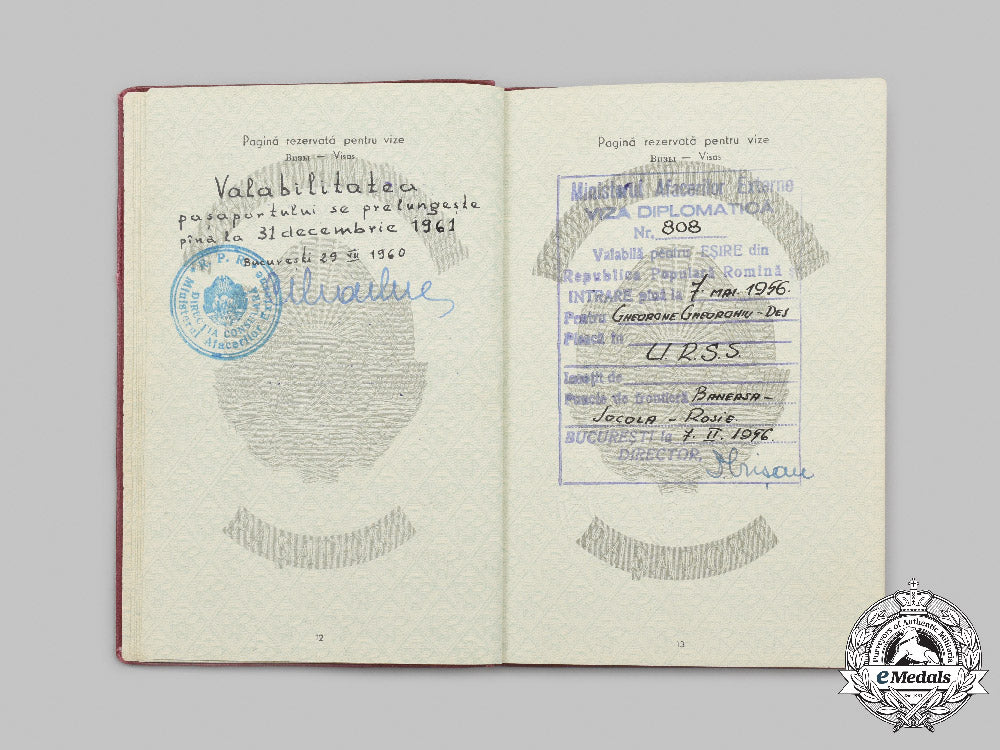 Pagină rezervată pentru vize
Визы — Visas
Valabilitatea
pașaportului se prelungește
pînă la 31 decembrie 1961
București 29 VII 1960
R. P. R.
Ministerul Afacerilor Externe
12
Pagină rezervată pentru vize
Визы — Visas
Ministerul Afacerilor Externe
VIZA DIPLOMATICA
Nr. 808
Valabilă pentru EȘIRE din
Republica Populară Romînă și
INTRARE pînă la 7. MAI. 1956.
Pentru GHEORGHE GHEORGHIU-DEJ
Pleacă în
U.R.S.S.
Însoțit de
Puncte de frontieră BANEASA-
JOCOLA - ROSIE
BUCUREȘTI la 7. II. 1956.
DIRECTOR,
13
Purveyors of Authentic Militaria
eMedals